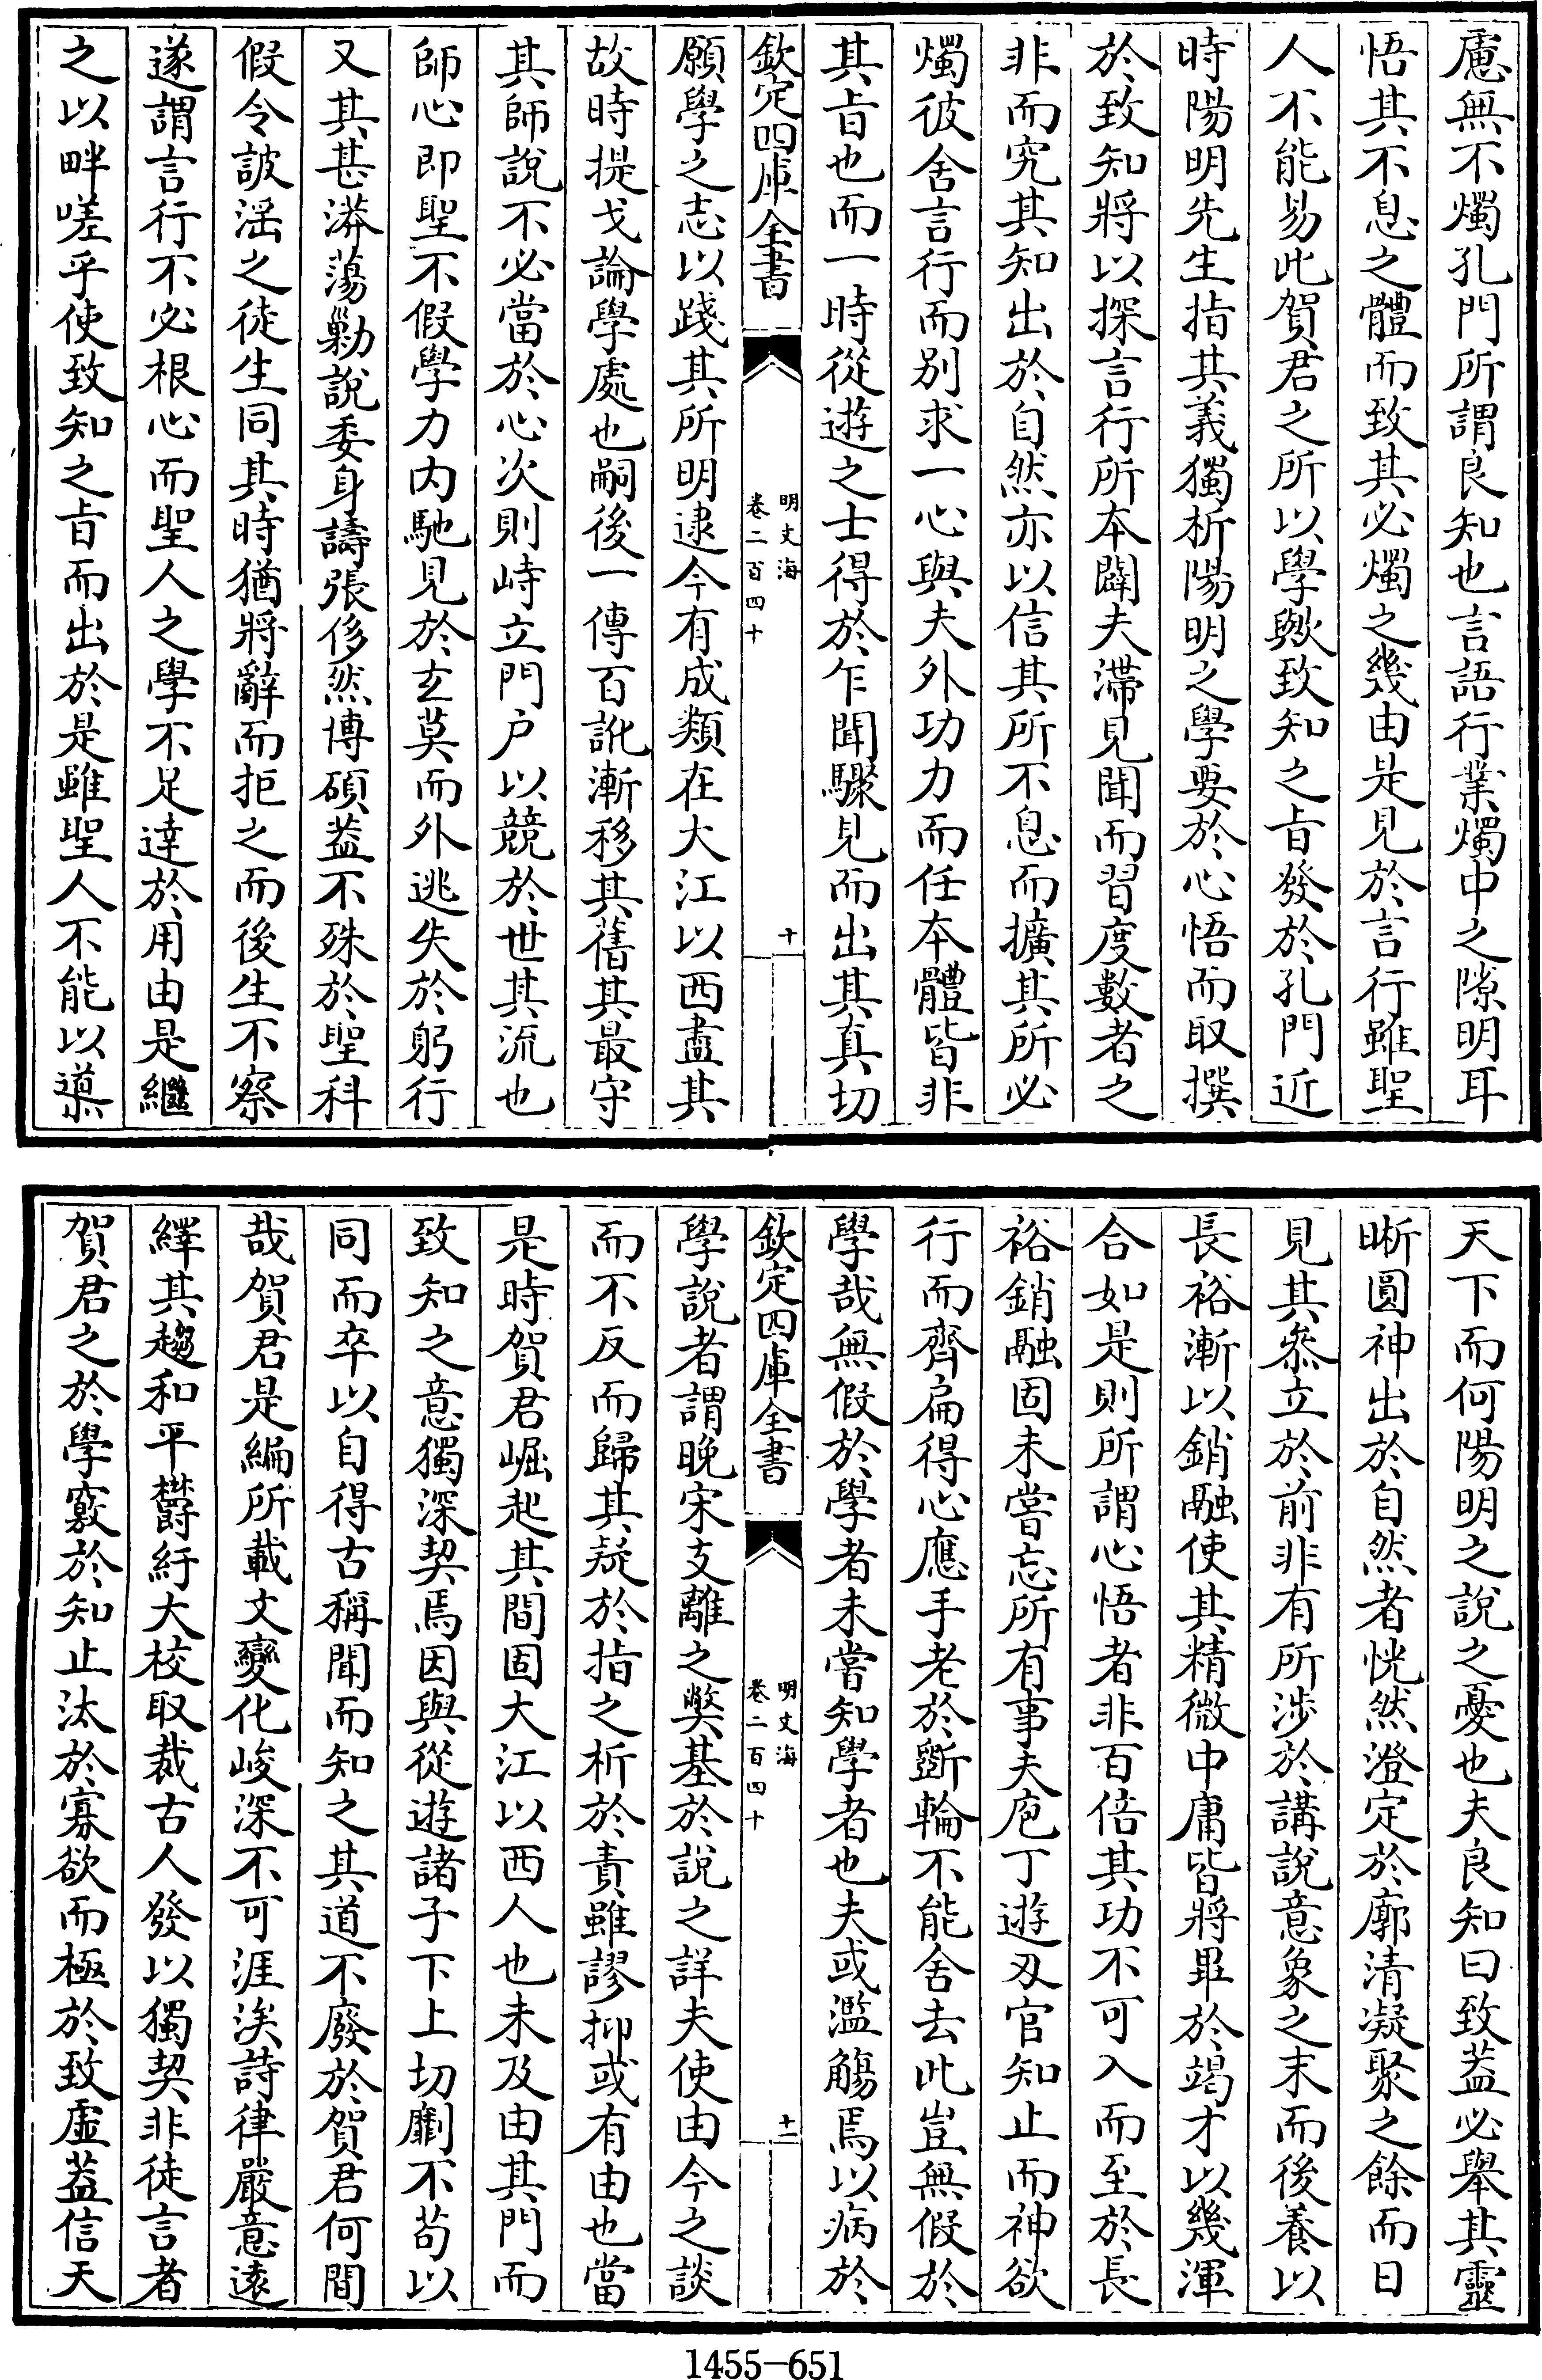 慮無不燭孔門所謂良知也言語行業燭中之隙明耳
悟其不息之體而致其必燭之幾由是見於言行雖聖
人不能易此賀君之所以學歟致知之㫖發於孔門近
時陽明先生指其義獨析陽明之學要於心悟而取撰
於致知將以探言行所本闢夫滯見聞而習度數者之
非而究其知出於自然亦以信其所不息而擴其所必
燭彼舍言行而别求一心與夫外功力而任本體皆非
其㫖也而一時從遊之士得於乍聞驟見而出其真切
欽定四庫全書
明文海
卷二百四十
十
願學之志以踐其所明逮今有成類在大江以西盡其
故時提戈論學處也嗣後一傳百訛漸移其舊其最守
其師說不必當於心次則峙立門户以競於世其流也
師心即聖不假學力内馳見於玄莫而外逃失於躬行
又其甚漭蕩勦說委身譸張侈然博碩葢不殊於聖科
假令詖淫之徒生同其時猶將辭而拒之而後生不察
遂謂言行不必根心而聖人之學不足達於用由是繼
之以畔嗟乎使致知之㫖而出於是雖聖人不能以導
天下而何陽明之說之憂也夫良知曰致葢必舉其靈
晰圓神出於自然者恍然澄定於廓清凝聚之餘而日
見其叅立於前非有所涉於講說意象之末而後養以
長裕漸以銷融使其精微中庸皆將畢於竭才以幾渾
合如是則所謂心悟者非百倍其功不可入而至於長
裕銷融固未嘗忘所有事夫庖丁遊刃官知止而神欲
行而齊扁得心應手老於斵輪不能舍去此豈無假於
學哉無假於學者未嘗知學者也夫或濫觴焉以病於
欽定四庫全書
明文海
卷二百四十
十一
學說者謂晚宋支離之獘基於說之詳夫使由今之談
而不反而歸其疑於指之析於責雖謬抑或有由也當
是時賀君崛起其間固大江以西人也未及由其門而
致知之意獨深契焉因與從遊諸子下上切劘不茍以
同而卒以自得古稱聞而知之其道不廢於賀君何間
哉賀君是編所載文變化峻深不可涯涘詩律嚴意遠
繹其趨和平欝紆大校取裁古人發以獨契非徒言者
賀君之於學竅於知止汰於寡欲而極於致虛葢信天
1455—651